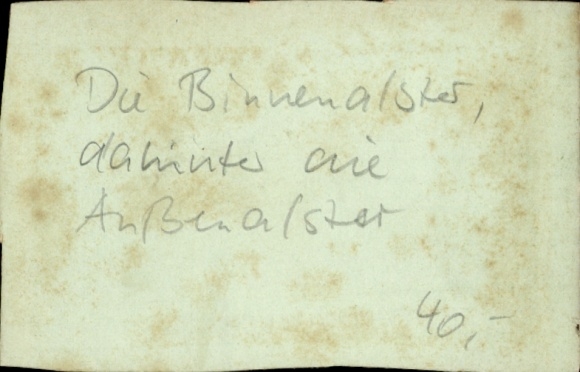 Die Binnenalster,
dahinter die
Außenalster
40,-